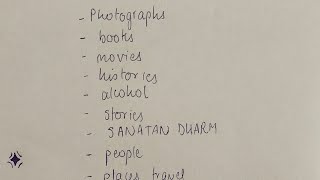 - Photographs
- books
- movies
- histories
- alcohol
- stories
- SANATAN DHARM
- people
- plays travel